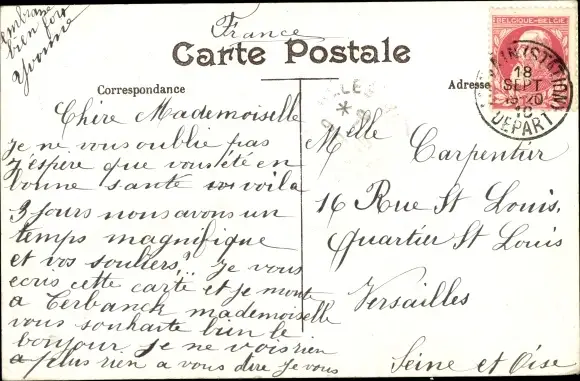 France
Carte Postale
Correspondance
Adresse
BELGIQUE-BELGIË
(STATION)
18
SEPT
19-20
10
DEPART
Chère Mademoiselle
je ne vous oublie pas
j'espère que vous été en
bonne santé voila
3 jours nous avons un
temps magnifique
et vos souliers? je vous
ecris cette carte et je monte
a Terbanck mademoiselle
vous souhaite bien le
bonjour je ne vois rien
a plus rien a vous dire je vous
embrasse
bien fort
Yvonne
Melle Carpentier
16 Rue St Louis.
Quartier St Louis
Versailles
Seine et Oise